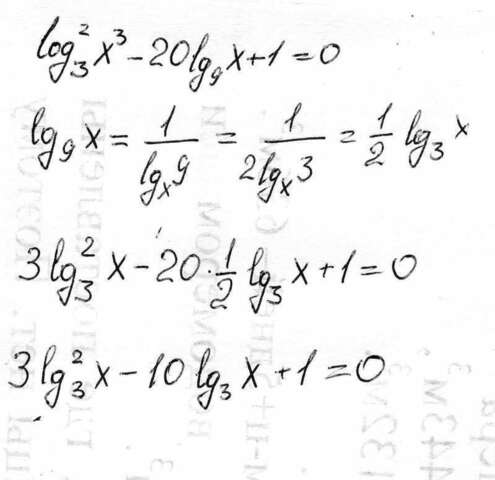 log₃²x³ - 20lg₉x + 1 = 0
lg₉x = 1/lgₓ9 = 1/2lgₓ3 = 1/2 lg₃x
3lg₃²x - 20·1/2 lg₃x + 1 = 0
3lg₃²x - 10lg₃x + 1 = 0